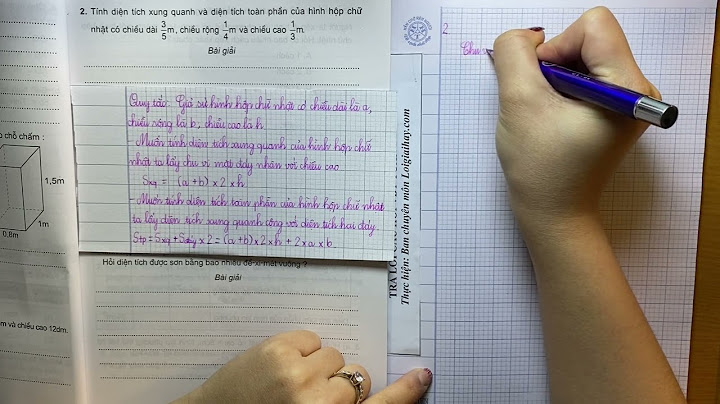 2. Tính diện tích xung quanh và diện tích toàn phần của hình hộp chữ
nhật có chiều dài 3/5 m, chiều rộng 1/4 m và chiều cao 1/3 m.
Bài giải
Quy tắc: Giả sử hình hộp chữ nhật có chiều dài là a,
chiều rộng là b, chiều cao là h.
- Muốn tính diện tích xung quanh của hình hộp chữ
nhật ta lấy chu vi mặt đáy nhân với chiều cao.
Sxq = (a + b) x 2 x h
- Muốn tính diện tích toàn phần của hình hộp chữ nhật
ta lấy diện tích xung quanh cộng với diện tích hai đáy.
Stp = Sxq + Sđáy x 2 = (a + b) x 2 x h + 2 x a x b
Hỏi diện tích được sơn bằng bao nhiêu đề-xi-mét vuông ?
Bài giải
chỗ chấm :
1,5m
1m
0,8m
m và chiều cao 12dm.
Thực hiện: Ban chuyên môn Loigiaihay.com
2.
Chu